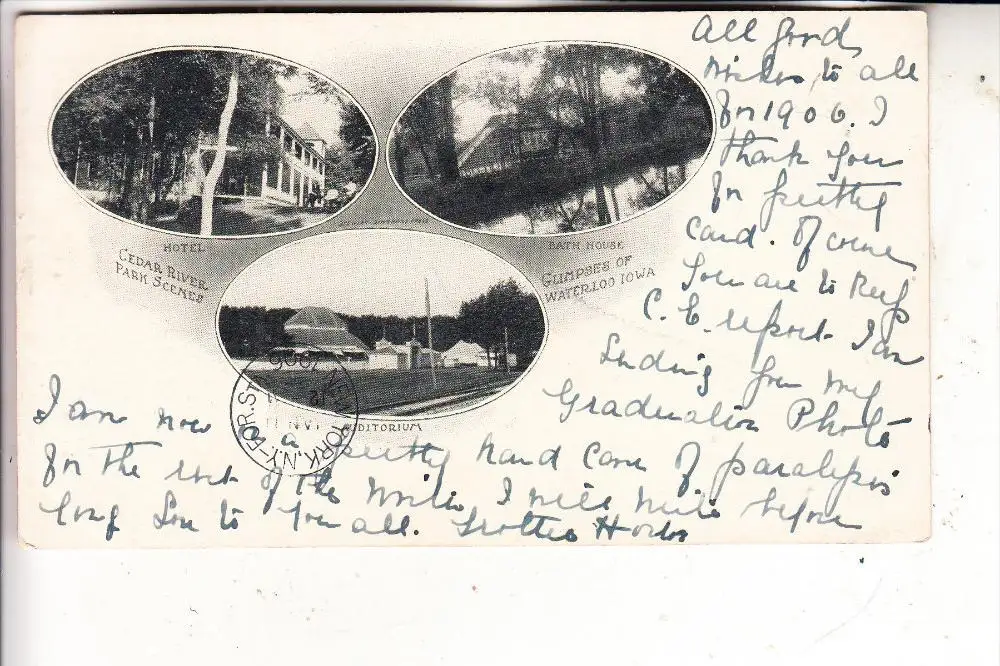 HOTEL
CEDAR RIVER
PARK SCENES
BATH HOUSE
GLIMPSES OF
WATERLOO IOWA
AUDITORIUM
NEW YORK, N.Y.-FOR. ST
1906
All good
wishes to all
for 1906. I
thank you
for pretty
card. Of course
you are to keep
C. E. report. I am
sending you my
Graduation Photo
I am now a pretty hard case of paralysis
for the rest of the I will write before
long Love to you all.